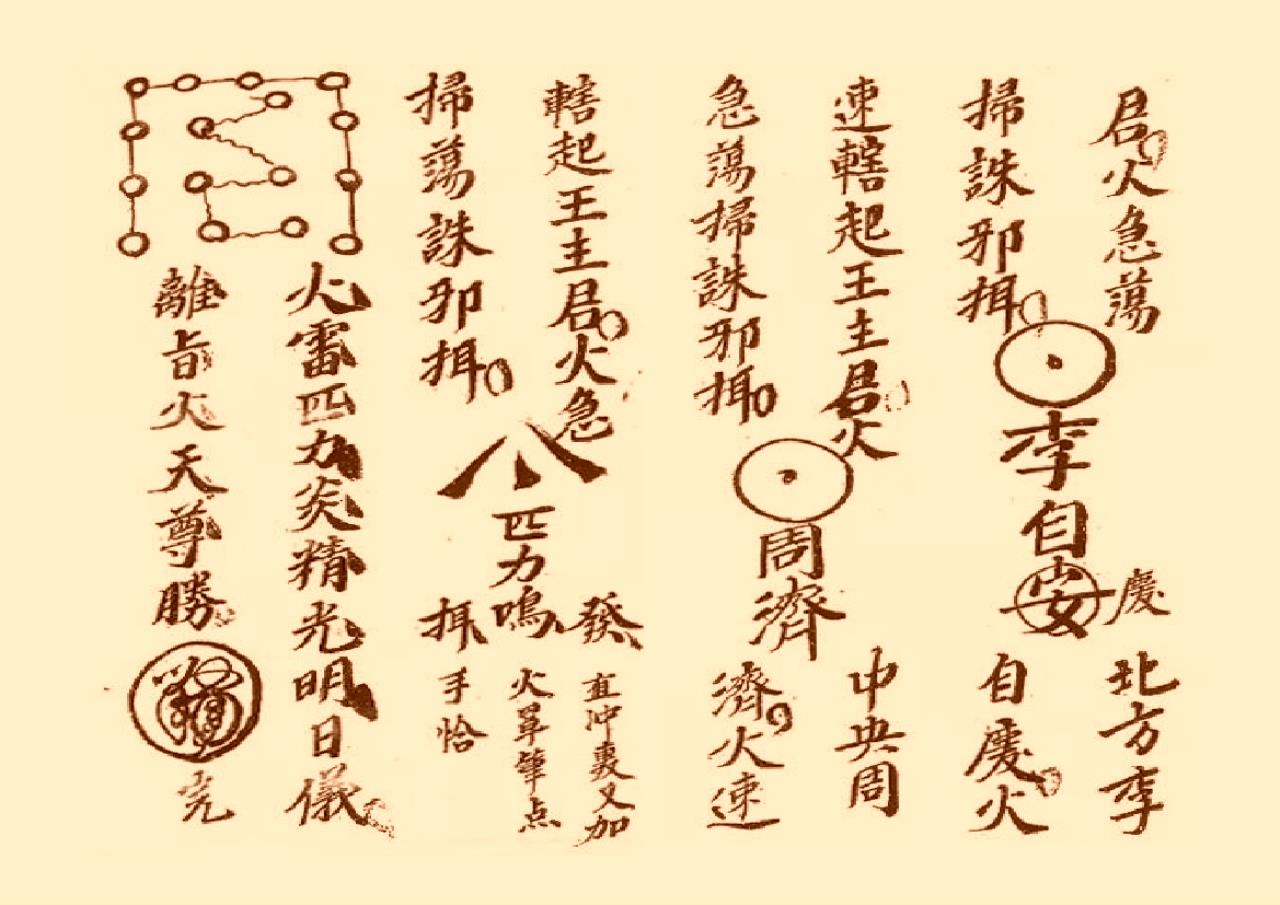 君火急蕩
掃誅邪搑
李
自
安
慶
北方李
自慶火
速轄起王主君火
急蕩掃誅邪搑
周
濟
中央周
濟火速
轄起王主君火急
掃蕩誅邪搑
匹力鳴
發
直冲裏又加
火罩筆点
手恰
火雷匹力炎精光明日儀
離旨火天尊勝
完